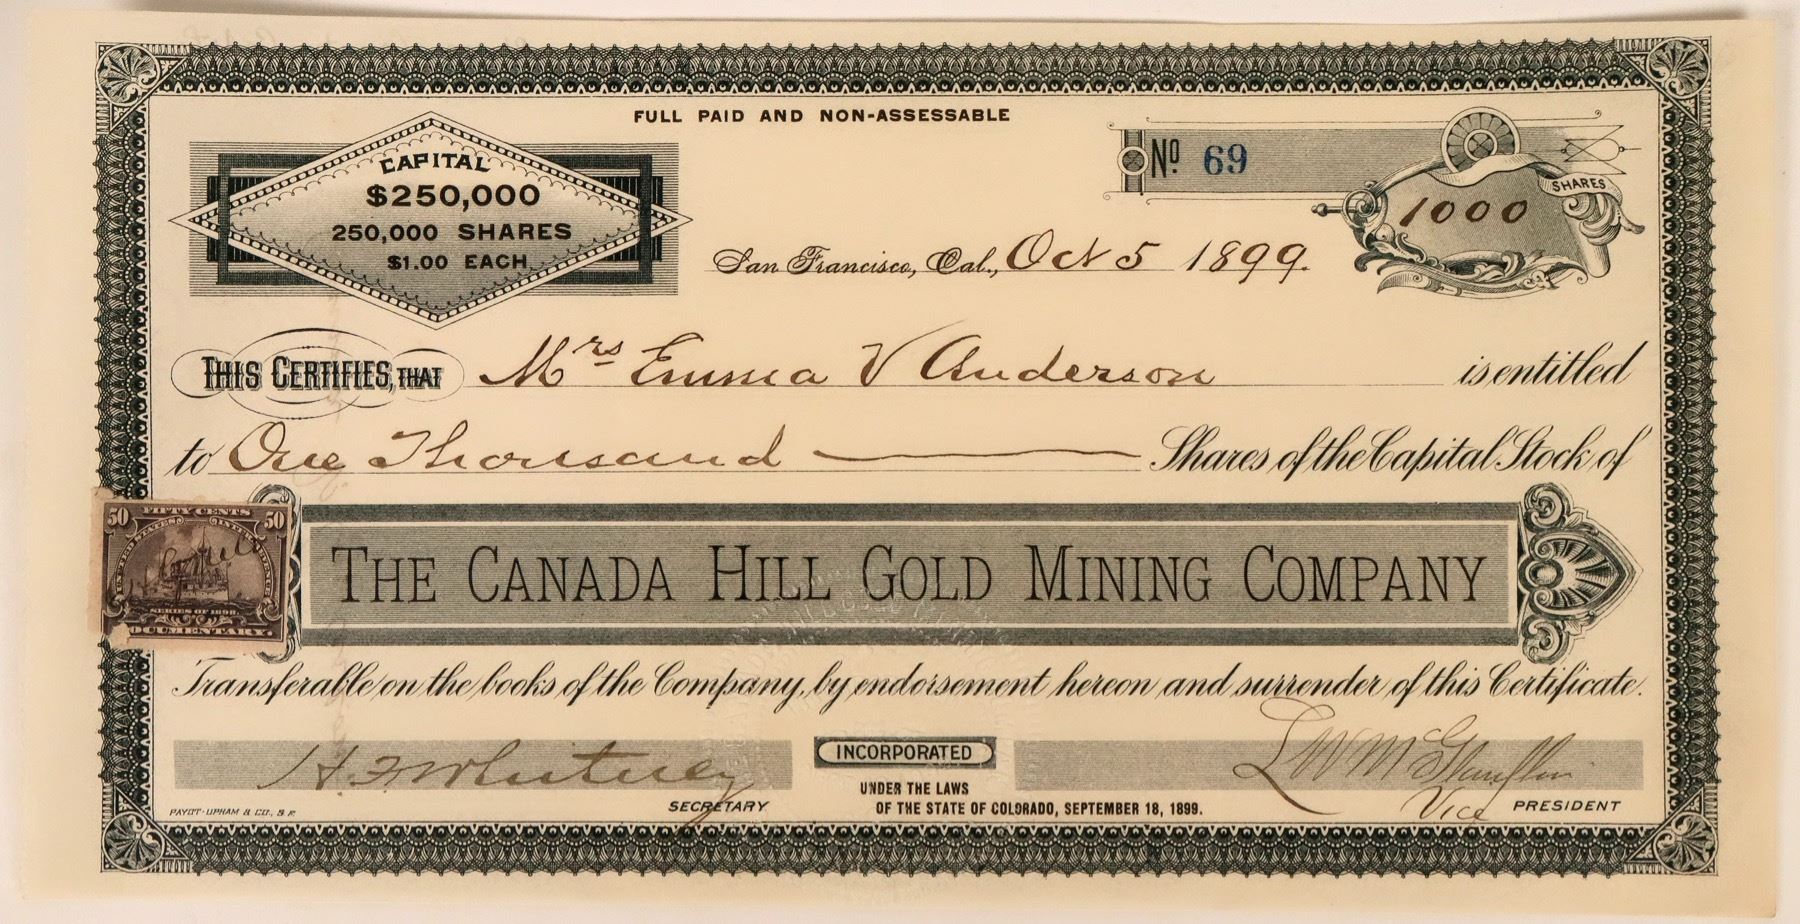 FULL PAID AND NON-ASSESSABLE
CAPITAL
$250,000
250,000 SHARES
$1.00 EACH
No 69
SHARES
1000
San Francisco, Cal., Oct 5 1899.
THIS CERTIFIES, THAT Mrs Emma V Anderson is entitled
to One Thousand Shares of the Capital Stock of
50 FIFTY CENTS 50
UNITED STATES INTER. REVENUE
SERIES OF 1898
DOCUMENTARY.
THE CANADA HILL GOLD MINING COMPANY
Transferable on the books of the Company, by endorsement hereon and surrender of this Certificate.
H. F. Whitney
SECRETARY
INCORPORATED
UNDER THE LAWS
OF THE STATE OF COLORADO, SEPTEMBER 18, 1899.
L W McGlauflin
Vice PRESIDENT
PAYOT-UPHAM & CO., S F.